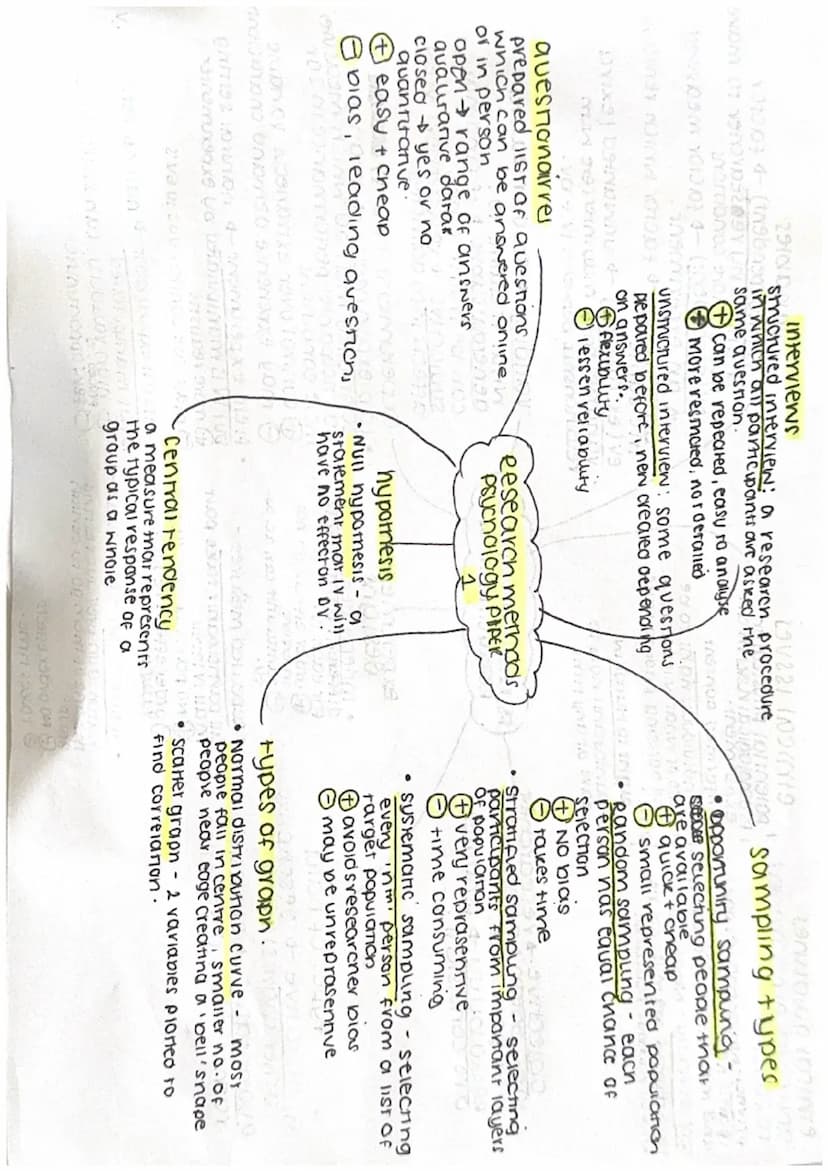 Research methods
psychology paper
1
questionairrel
prepared list of questions
which can be answered online
or in person
open → range of answers
qualitative datar
closed → yes or no
quantitative.
⊕ easy + cheap
⊖ bias, leading question,
interviews
structured interview: a research procedure
in which all participants are asked the
same question.
⊕ can be repeated, easy to analyse
more restricted, not detailed
unstructured interview: some questions
prepared before, new created depending
on answers.
⊕ flexibility
⊖ lessen reliability
sampling types
• opportunity sampling -
selecting people that
are available
⊕ quick + cheap
⊖ small represented population
• random sampling - each
person has equal chance of
selection
⊕ No bias
⊖ takes time
• Stratified sampling - selecting
participants from important layers
of population
⊕ very represenrive
⊖ time consuming
• systematic sampling - selecting
every 'nth' person from a list of
target population
⊕ avoids researcher bias
⊖ may be unreprasennve
types of graph.
• Normal distribution curve - most
people fall in centre, smaller no. of
people near edge creating a 'bell' shape
• Scatter graph - 2 variables plotted to
find correlation.
hypothesis
• Null hypothesis - a
statement that IV will
have no effect on DV.
central tendency
a measure that represents
the typical response of a
group as a whole